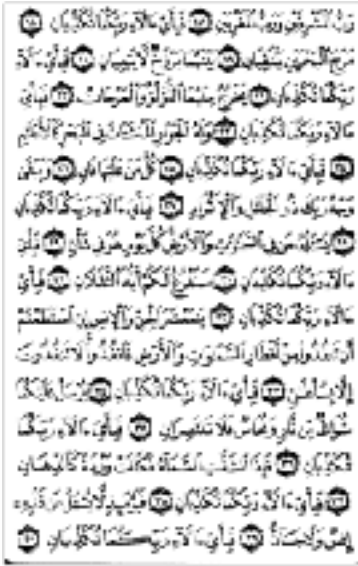 رَبُّ ٱلْمَشْرِقَيْنِ وَرَبُّ ٱلْمَغْرِبَيْنِ ١٧ فَبِأَىِّ ءَالَآءِ رَبِّكُمَا تُكَذِّبَانِ ١٨
مَرَجَ ٱلْبَحْرَيْنِ يَلْتَقِيَانِ ١٩ بَيْنَهُمَا بَرْزَخٌ لَّا يَبْغِيَانِ ٢٠ فَبِأَىِّ ءَالَآءِ
رَبِّكُمَا تُكَذِّبَانِ ٢١ يَخْرُجُ مِنْهُمَا ٱللُّؤْلُؤُ وَٱلْمَرْجَانُ ٢٢ فَبِأَىِّ
ءَالَآءِ رَبِّكُمَا تُكَذِّبَانِ ٢٣ وَلَهُ ٱلْجَوَارِ ٱلْمُنشَـَٔاتُ فِى ٱلْبَحْرِ كَٱلْأَعْلَـٰمِ
٢٤ فَبِأَىِّ ءَالَآءِ رَبِّكُمَا تُكَذِّبَانِ ٢٥ كُلُّ مَنْ عَلَيْهَا فَانٍ ٢٦ وَيَبْقَىٰ
وَجْهُ رَبِّكَ ذُو ٱلْجَلَـٰلِ وَٱلْإِكْرَامِ ٢٧ فَبِأَىِّ ءَالَآءِ رَبِّكُمَا تُكَذِّبَانِ
٢٨ يَسْـَٔلُهُۥ مَن فِى ٱلسَّمَـٰوَٰتِ وَٱلْأَرْضِ كُلَّ يَوْمٍ هُوَ فِى شَأْنٍ ٢٩ فَبِأَىِّ
ءَالَآءِ رَبِّكُمَا تُكَذِّبَانِ ٣٠ سَنَفْرُغُ لَكُمْ أَيُّهَ ٱلثَّقَلَانِ ٣١ فَبِأَىِّ
ءَالَآءِ رَبِّكُمَا تُكَذِّبَانِ ٣٢ يَـٰمَعْشَرَ ٱلْجِنِّ وَٱلْإِنسِ إِنِ ٱسْتَطَعْتُمْ
أَن تَنفُذُوا۟ مِنْ أَقْطَارِ ٱلسَّمَـٰوَٰتِ وَٱلْأَرْضِ فَٱنفُذُوا۟ لَا تَنفُذُونَ
إِلَّا بِسُلْطَـٰنٍ ٣٣ فَبِأَىِّ ءَالَآءِ رَبِّكُمَا تُكَذِّبَانِ ٣٤ يُرْسَلُ عَلَيْكُمَا
شُوَاظٌ مِّن نَّارٍ وَنُحَاسٌ فَلَا تَنتَصِرَانِ ٣٥ فَبِأَىِّ ءَالَآءِ رَبِّكُمَا
تُكَذِّبَانِ ٣٦ فَإِذَا ٱنشَقَّتِ ٱلسَّمَآءُ فَكَانَتْ وَرْدَةً كَٱلدِّهَانِ
٣٧ فَبِأَىِّ ءَالَآءِ رَبِّكُمَا تُكَذِّبَانِ ٣٨ فَيَوْمَئِذٍ لَّا يُسْـَٔلُ عَن ذَنۢبِهِۦٓ
إِنسٌ وَلَا جَآنٌّ ٣٩ فَبِأَىِّ ءَالَآءِ رَبِّكُمَا تُكَذِّبَانِ ٤٠